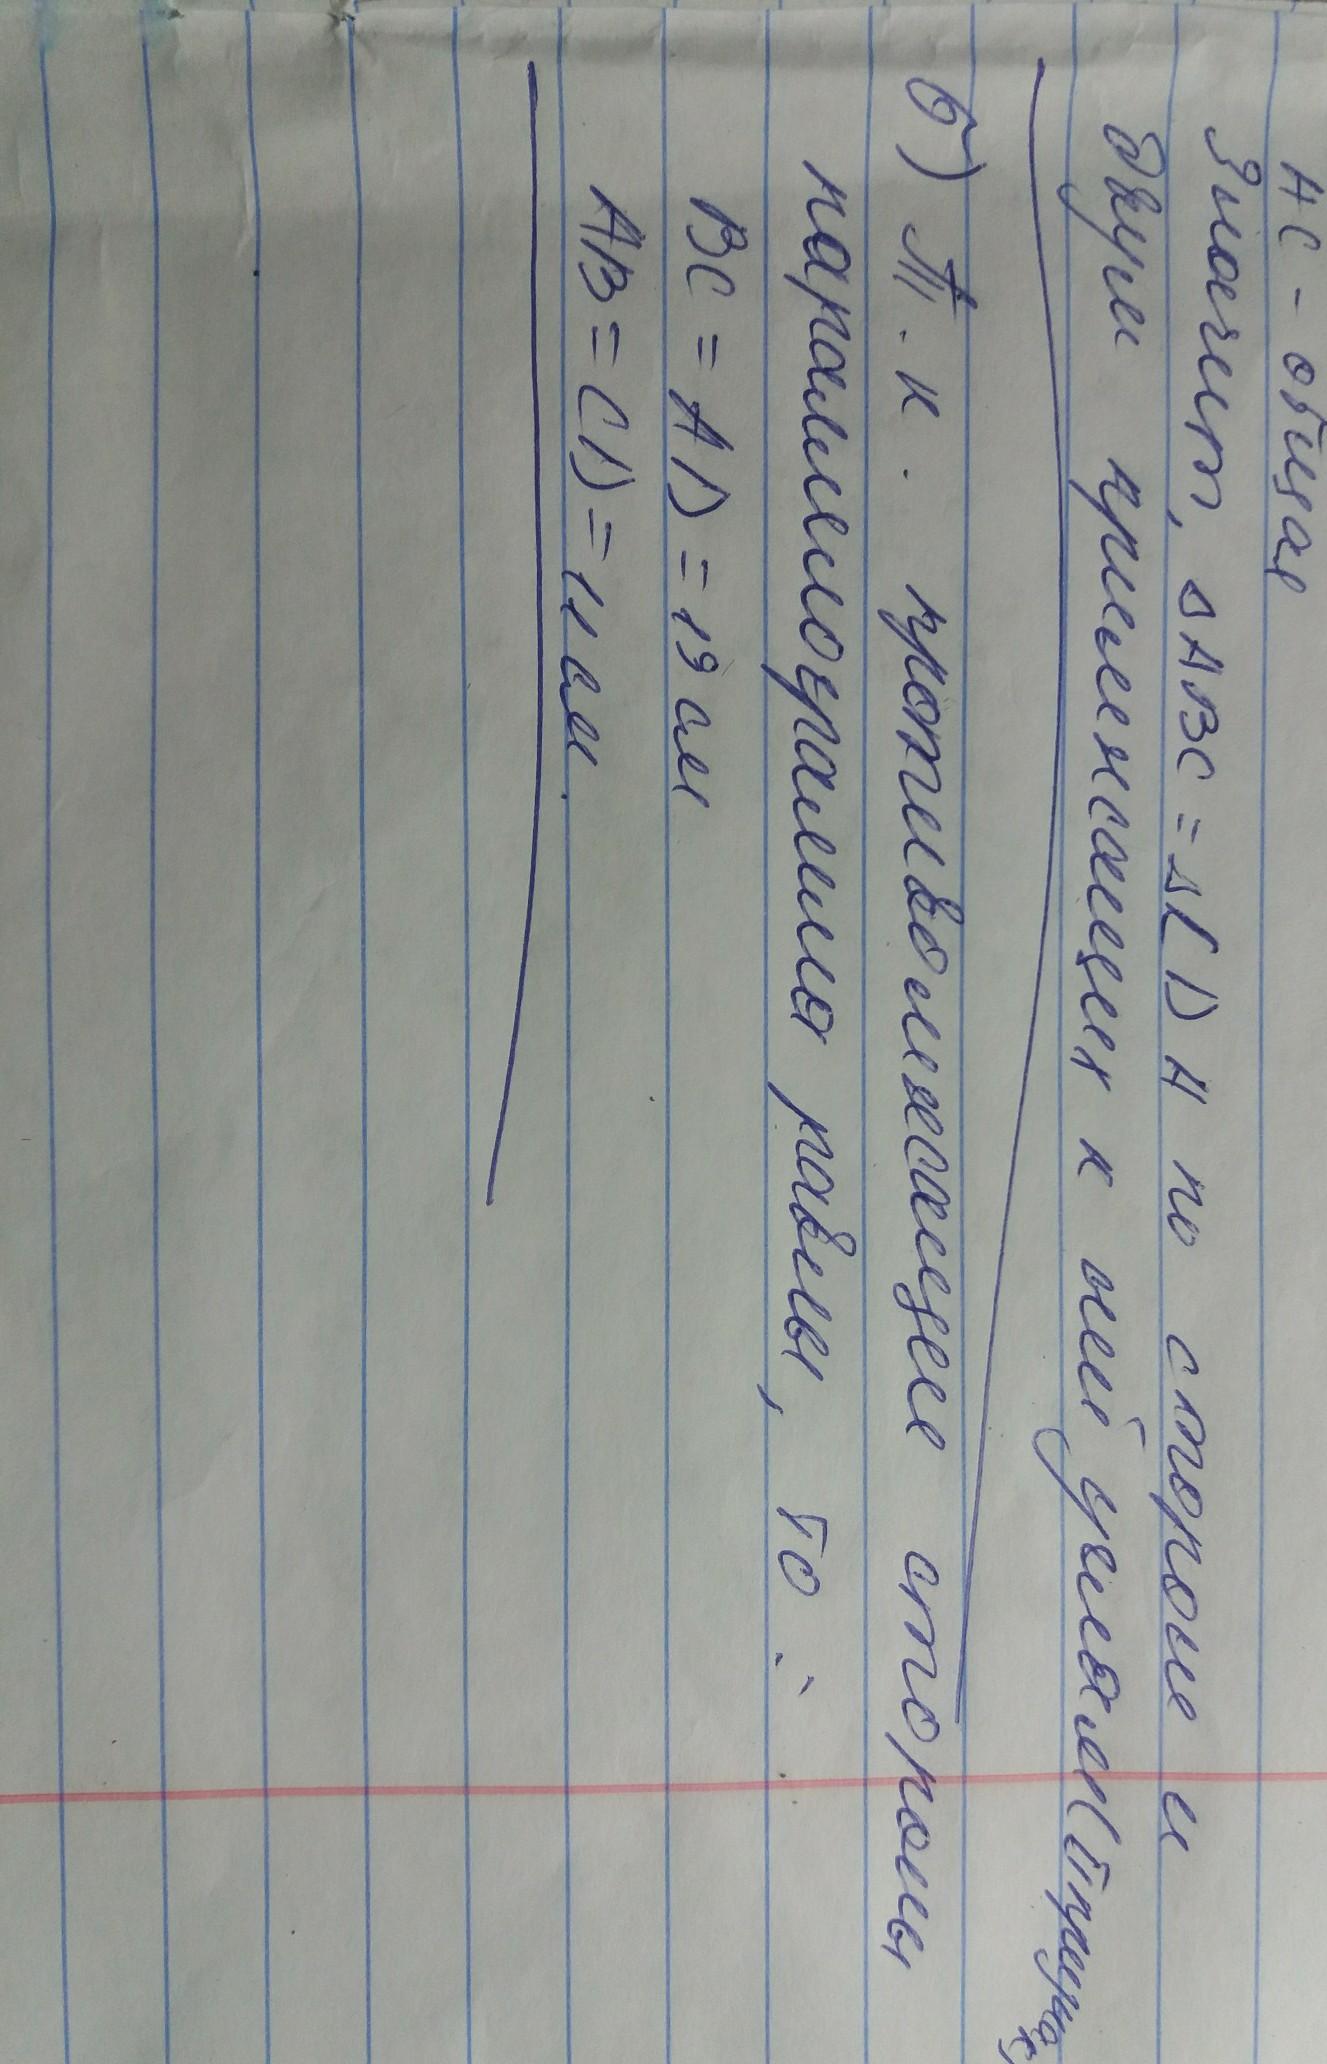 AC - общая
Значит, ΔABC = ΔCDA по стороне и
двум прилежащем к ней углам (II призна
б) Т.к. противолежащее стороны
параллелограмма равны, то:
BC = AD = 19 см
AB = CD = 11 см.